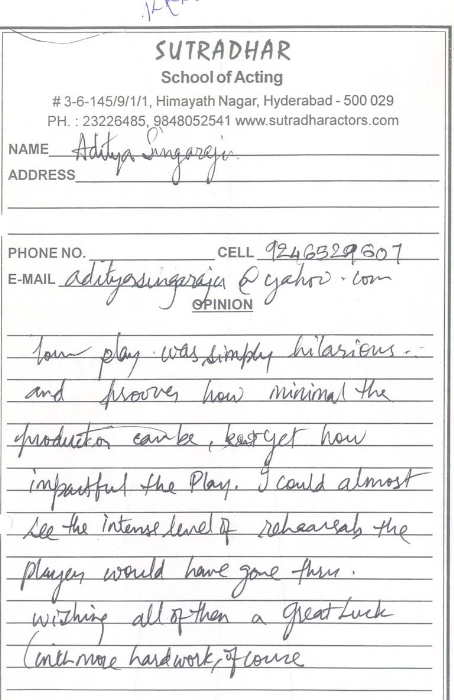 SUTRADHAR
School of Acting
# 3-6-145/9/1/1, Himayath Nagar, Hyderabad - 500 029
PH. : 23226485, 9848052541 www.sutradharactors.com
NAME Aditya Singaraju
ADDRESS
PHONE NO. CELL 9246529607
E-MAIL adityasingaraju@yahoo.com
OPINION
Your play was simply hilarious..
and prooves how minimal the
production can be, yet how
impactful the Play. I could almost
see the intense level of rehearsals the
players would have gone thru.
wishing all of then a Great Luck
(with more hardwork, of course